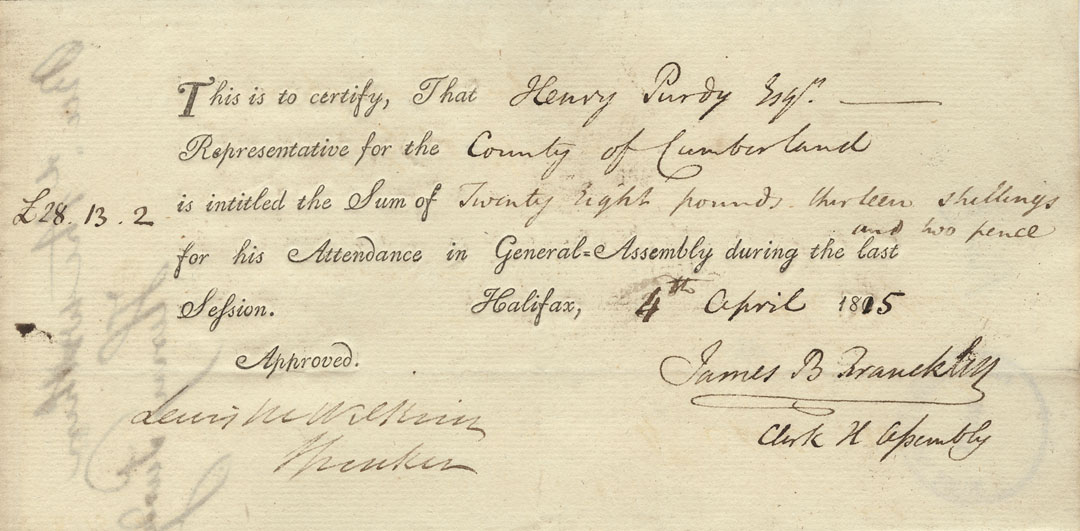 This is to certify, That Henry Purdy Esqr.
Representative for the County of Cumberland
£28.13.2 is intitled the Sum of Twenty Eight pounds thirteen shillings
and two pence
for his Attendance in General=Assembly during the last
Session. Halifax, 4th April 1815
Approved.
James B Francklin
Lewis M Wilkins
Clerk H Assembly
Speaker